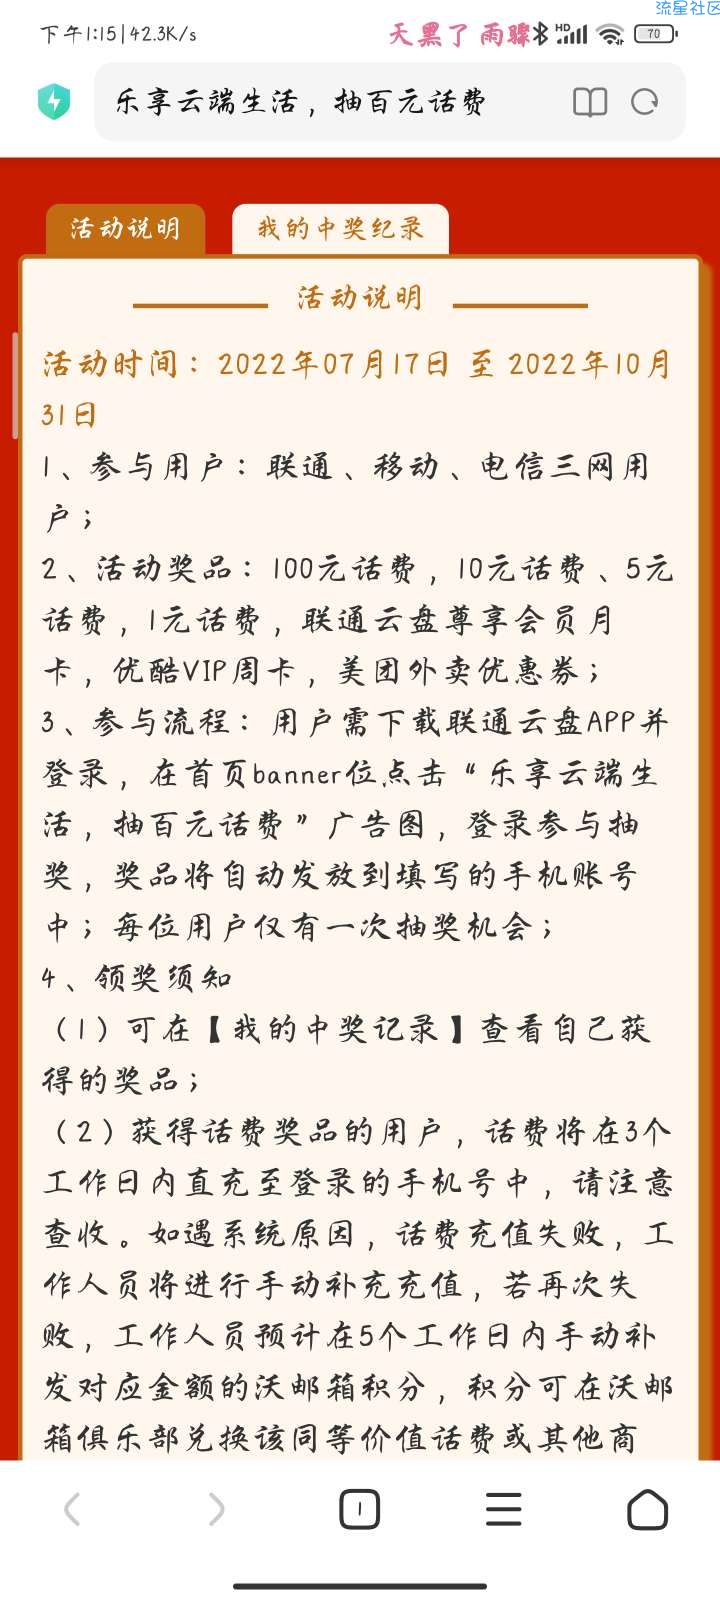 流星社区
下午1:15|42.3K/s
天黑了 雨骤
HD
70
乐享云端生活，抽百元话费
活动说明
我的中奖纪录
活动说明
活动时间：2022年07月17日 至 2022年10月
31日
1、参与用户：联通、移动、电信三网用
户；
2、活动奖品：100元话费，10元话费、5元
话费，1元话费，联通云盘尊享会员月
卡，优酷VIP周卡，美团外卖优惠券；
3、参与流程：用户需下载联通云盘APP并
登录，在首页banner位点击“乐享云端生
活，抽百元话费”广告图，登录参与抽
奖，奖品将自动发放到填写的手机账号
中；每位用户仅有一次抽奖机会；
4、领奖须知
（1）可在【我的中奖记录】查看自己获
得的奖品；
（2）获得话费奖品的用户，话费将在3个
工作日内直充至登录的手机号中，请注意
查收。如遇系统原因，话费充值失败，工
作人员将进行手动补充充值，若再次失
败，工作人员预计在5个工作日内手动补
发对应金额的沃邮箱积分，积分可在沃邮
箱俱乐部兑换该同等价值话费或其他商
1